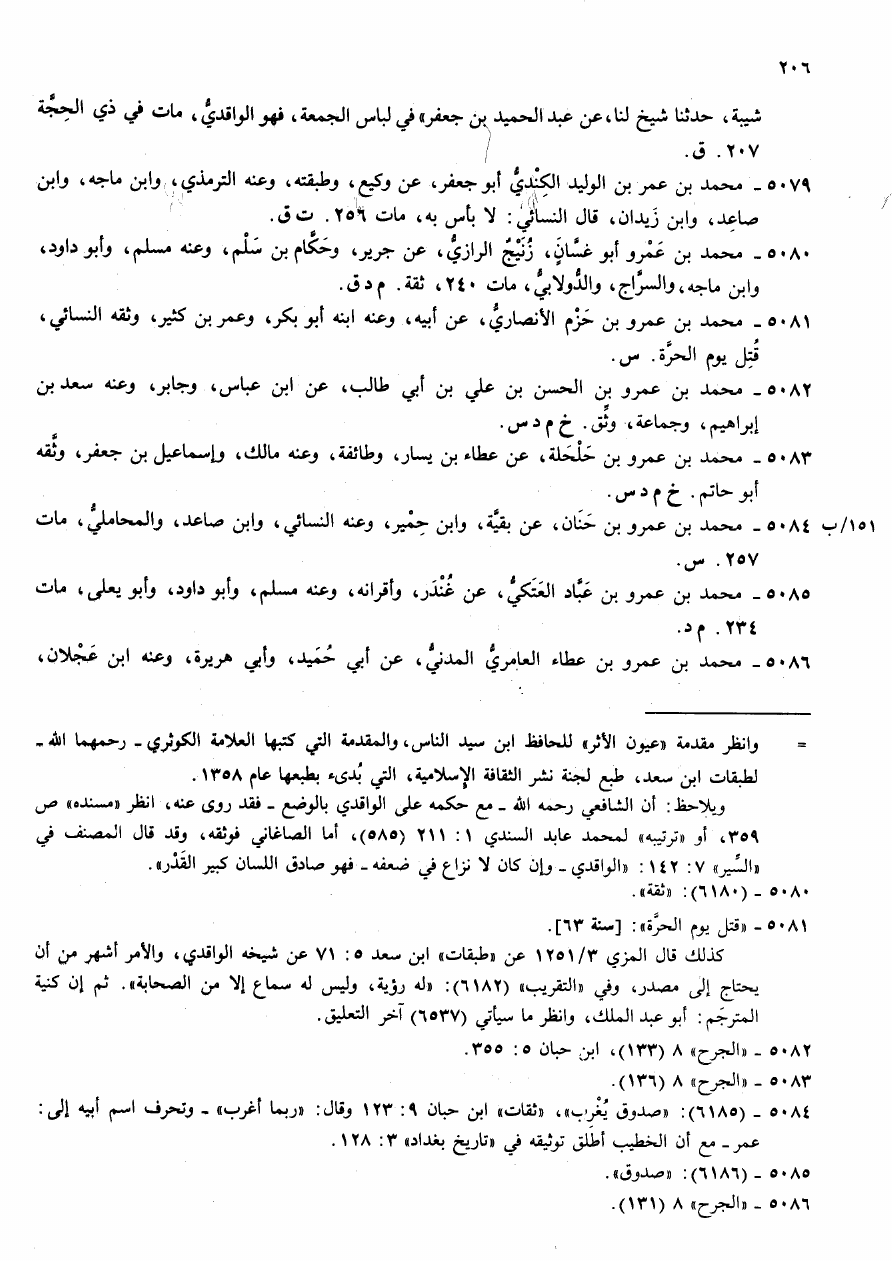 ٢٠٦
شيبة، حدثنا شيخ لنا، عن عبد الحميد بن جعفر» في لباس الجمعة، فهو الواقديُّ، مات في ذي الحِجَّة
٢٠٧. ق.
٥٠٧٩ ـ محمد بن عمر بن الوليد الكِنْديُّ أبو جعفر، عن وكيع، وطبقته، وعنه الترمذي، وابن ماجه، وابن
صاعد، وابن زَيدان، قال النسائيُّ: لا بأس به، مات ٢٥٦. ت ق.
٥٠٨٠ ـ محمد بن عَمْرو أبو غسَّانٍ، زُنَيْجٌ الرازيُّ، عن جرير، وحَكَّام بن سَلْم، وعنه مسلم، وأبو داود،
وابن ماجه، والسرَّاج، والدُّولابيُّ، مات ٢٤٠، ثقة. م د ق.
٥٠٨١ ـ محمد بن عمرو بن حَزْم الأنصاريُّ، عن أبيه، وعنه ابنه أبو بكر، وعمر بن كثير، وثقه النسائي،
قُتِل يوم الحرَّة. س.
٥٠٨٢ ـ محمد بن عمرو بن الحسن بن علي بن أبي طالب، عن ابن عباس، وجابر، وعنه سعد بن
إبراهيم، وجماعة، وثِّق. خ م د س.
٥٠٨٣ ـ محمد بن عمرو بن حَلْحَلة، عن عطاء بن يسار، وطائفة، وعنه مالك، وإسماعيل بن جعفر، وثَّقه
أبو حاتم. خ م د س.
١٥١/ب ٥٠٨٤ ـ محمد بن عمرو بن حَنَان، عن بقيَّة، وابن حِمْير، وعنه النسائي، وابن صاعد، والمحامليُّ، مات
٢٥٧. س.
٥٠٨٥ ـ محمد بن عمرو بن عَبَّاد العَتَكيُّ، عن غُنْدَر، وأقرانه، وعنه مسلم، وأبو داود، وأبو يعلى، مات
٢٣٤. م د.
٥٠٨٦ ـ محمد بن عمرو بن عطاء العامريُّ المدنيُّ، عن أبي حُمَيد، وأبي هريرة، وعنه ابن عَجْلان،
= وانظر مقدمة «عيون الأثر» للحافظ ابن سيد الناس، والمقدمة التي كتبها العلامة الكوثري ـ رحمهما الله ـ
لطبقات ابن سعد، طبع لجنة نشر الثقافة الإسلامية، التي بُدىء بطبعها عام ١٣٥٨.
ويلاحظ: أن الشافعي رحمه الله ـ مع حكمه على الواقدي بالوضع ـ فقد روى عنه، انظر «مسنده» ص
٣٥٩، أو «ترتيبه» لمحمد عابد السندي ١: ٢١١ (٥٨٥)، أما الصاغاني فوثقه، وقد قال المصنف في
«السِّير» ٧: ١٤٢: «الواقدي ـ وإن كان لا نزاع في ضعفه ـ فهو صادق اللسان كبير القَدْر».
٥٠٨٠ ـ (٦١٨٠): «ثقة».
٥٠٨١ ـ «قتل يوم الحرَّة»: [سنة ٦٣].
كذلك قال المزي ١٢٥١/٣ عن «طبقات» ابن سعد ٥: ٧١ عن شيخه الواقدي، والأمر أشهر من أن
يحتاج إلى مصدر، وفي «التقريب» (٦١٨٢): «له رؤية، وليس له سماع إلا من الصحابة». ثم إن كنية
المترجَم: أبو عبد الملك، وانظر ما سيأتي (٦٥٣٧) آخر التعليق.
٥٠٨٢ ـ «الجرح» ٨ (١٣٣)، ابن حبان ٥: ٣٥٥.
٥٠٨٣ ـ «الجرح» ٨ (١٣٦).
٥٠٨٤ ـ (٦١٨٥): «صدوق يُغْرِب»، «ثقات» ابن حبان ٩: ١٢٣ وقال: «ربما أغرب» ـ وتحرف اسم أبيه إلى:
عمر ـ مع أن الخطيب أطلق توثيقه في «تاريخ بغداد» ٣: ١٢٨.
٥٠٨٥ ـ (٦١٨٦): «صدوق».
٥٠٨٦ ـ «الجرح» ٨ (١٣١).